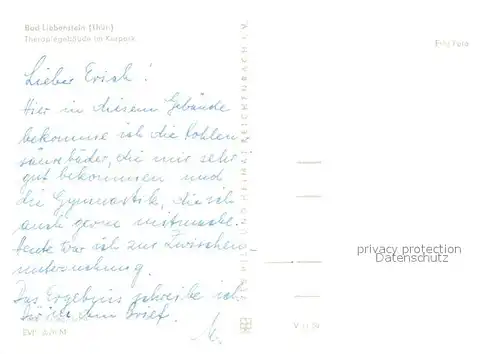 Bad Liebenstein (Thür.)
Therapiegebäude im Kurpark
Echt Foto
Lieber Erich!
Hier in diesem Gebäude
bekomme ich die Kohlen-
säurebäder, die mir sehr
gut bekommen und
die Gymnastik, die ich
auch gerne mitmache.
Heute war ich zur Zwischen-
untersuchung.
Das Ergebnis schreibe ich
Dir in dem Brief.
BILD UND HEIMAT REICHENBACH I. V.
privacy protection
Datenschutz